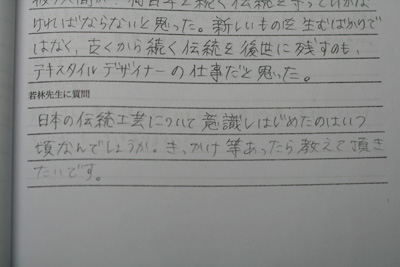 間が、何百年と続く伝統を守っていかな
ければならないと思った。新しいものを生むばかりで
はなく、古くから続く伝統を後世に残すのも、
テキスタイルデザイナーの仕事だと思った。
若林先生に質問
日本の伝統工芸について意識しはじめたのはいつ
頃なんでしょうか。きっかけ等あったら教えて頂き
たいです。